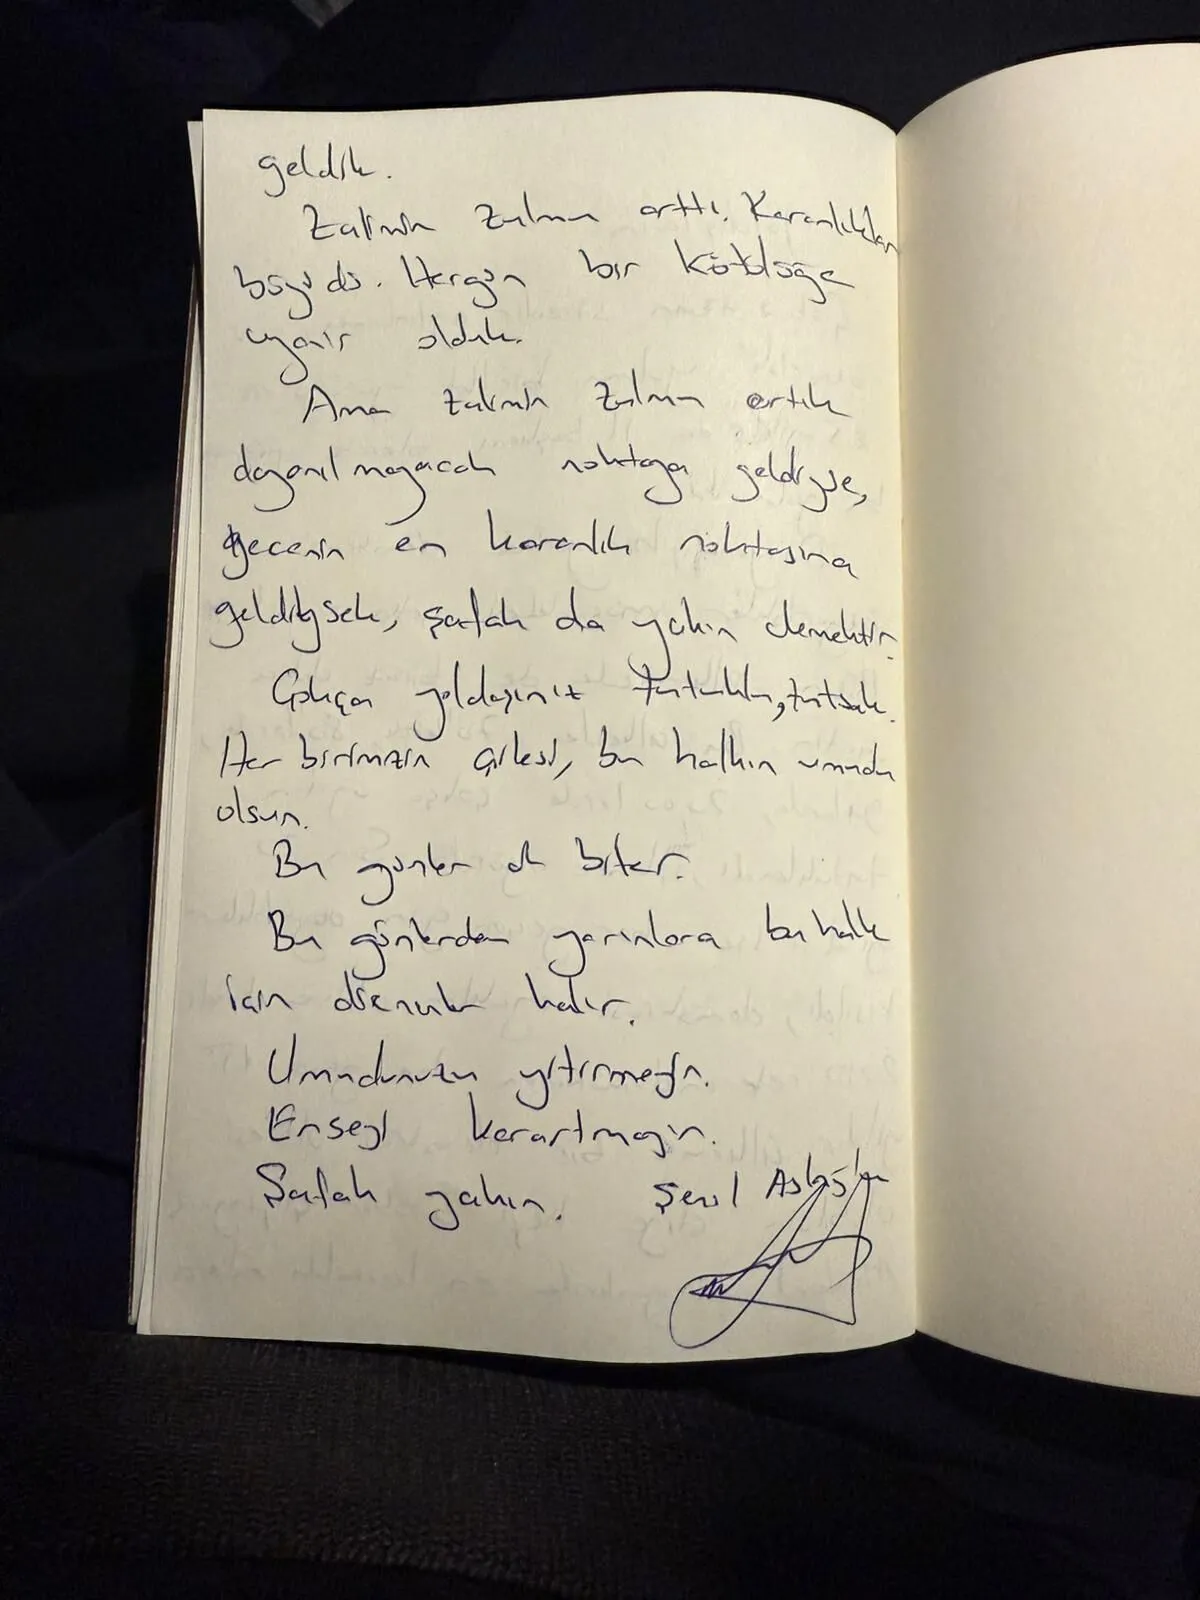 geldik.
Zalimin zulmü arttı. Karanlıktan
büyüdü. Hergün bir kötülüğe
uyanır olduk.
Ama zalimin zulmu artık
dayanılmayacak noktaya geldiyse,
gecenin en karanlık noktasına
geldiysek, şafak da yakın demektir.
Gokça yoldaşınız tutuklu, tutsak.
Her birimizin çilesi, bu halkın umudu
olsun.
Bu günler de biter.
Bu günlerden yarınlara bu halk
için direnenler kalır.
Umudunuzu yitirmeyin.
Enseyi karartmayın.
Şafak yakın. Şenol Aslanoğlu